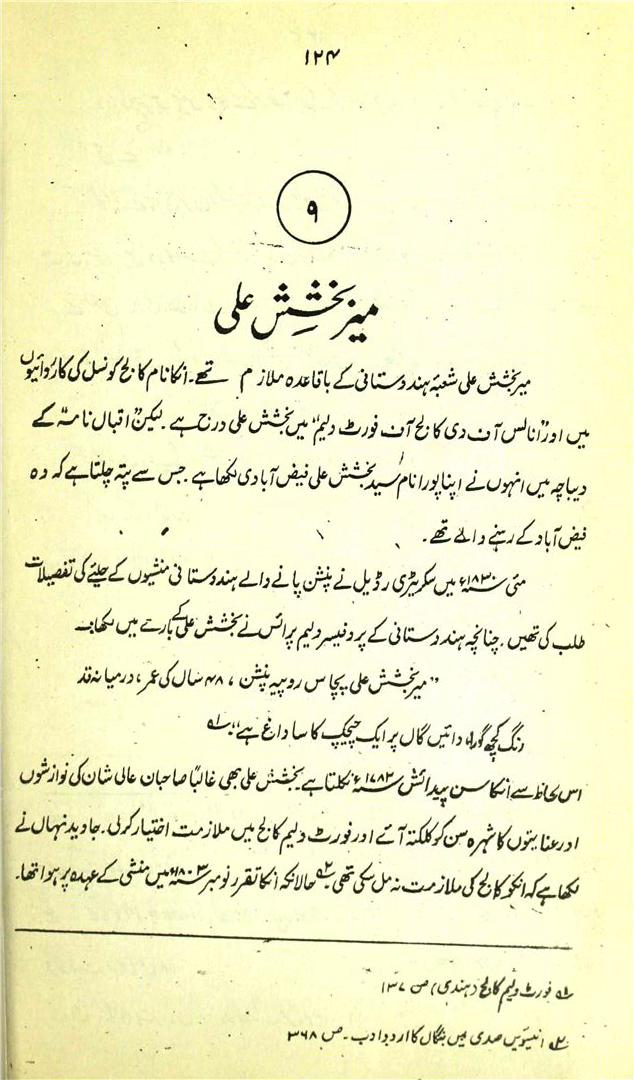 ۱۲۴
۹
میر بخشِش علی
میر بخشش علی شعبۂ ہندوستانی کے باقاعدہ ملازم تھے۔ انکا نام کالج کونسل کی کاروائیوں
میں اور "انالس آف دی کالج آف فورٹ ولیم" میں بخشش علی درج ہے۔ لیکن "اقبال نامہ" کے
دیباچہ میں انہوں نے اپنا پورا نام سید بخشش علی فیض آبادی لکھا ہے۔ جس سے پتہ چلتا ہے کہ وہ
فیض آباد کے رہنے والے تھے۔
مئی سنہ ۱۸۳۰ء میں سکریٹری رڈیل نے پنشن پانے والے ہندوستانی منشیوں کے حلیے کی تفصیلات
طلب کی تھیں۔ چنانچہ ہندوستانی کے پروفیسر ولیم پرائس نے بخشش علی کے بارے میں لکھا:۔
"میر بخشش علی پچاس روپیہ پنشن، ۴۸ سال کی عمر، درمیانہ قد
رنگ کچھ گورا، دائیں گال پر ایک چیچک کا سا داغ ہے"۔ ؎۱
اس لحاظ سے انکا سن پیدائش سنہ ۱۷۸۲ء نکلتا ہے۔ بخشش علی بھی غالباً صاحبان عالی شان کی نوازشوں
اور عنایتوں کا شہرہ سن کو کلکتہ آئے اور فورٹ ولیم کالج میں ملازمت اختیار کرلی۔ جاوید نہال نے
لکھا ہے کہ انکو کالج کی ملازمت نہ مل سکی تھی۔ ؎۲ حالانکہ انکا تقرر نومبر سنہ ۱۸۰۳ء میں منشی کے عہدہ پر ہوا تھا۔
؎۱ فورٹ ولیم کالج (ہندی) ص ۱۳۷
؎۲ انیسویں صدی میں بنگال کا اردو ادب۔ ص ۳۶۸